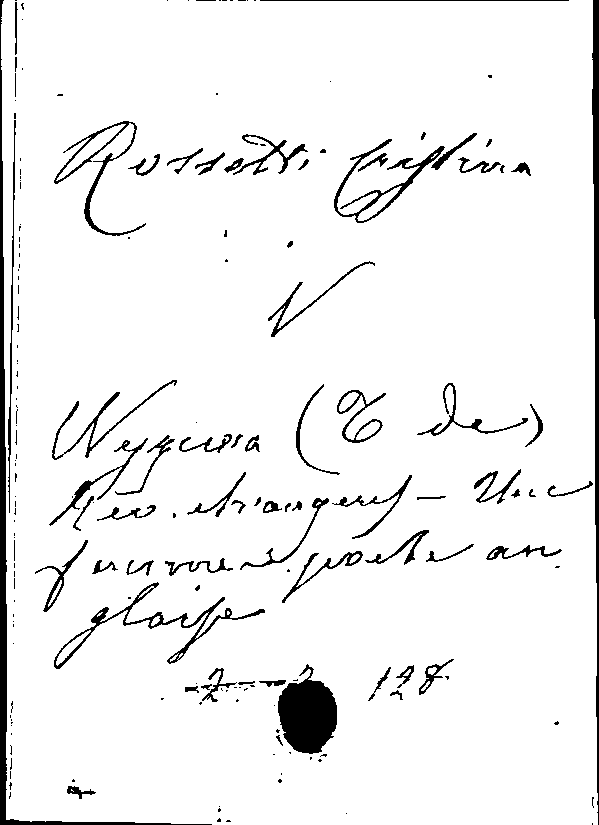 Rossetti Cristina
V
Wyzewa (T de)
Rev. etrangeres — Une
femme poete an
glaise
128